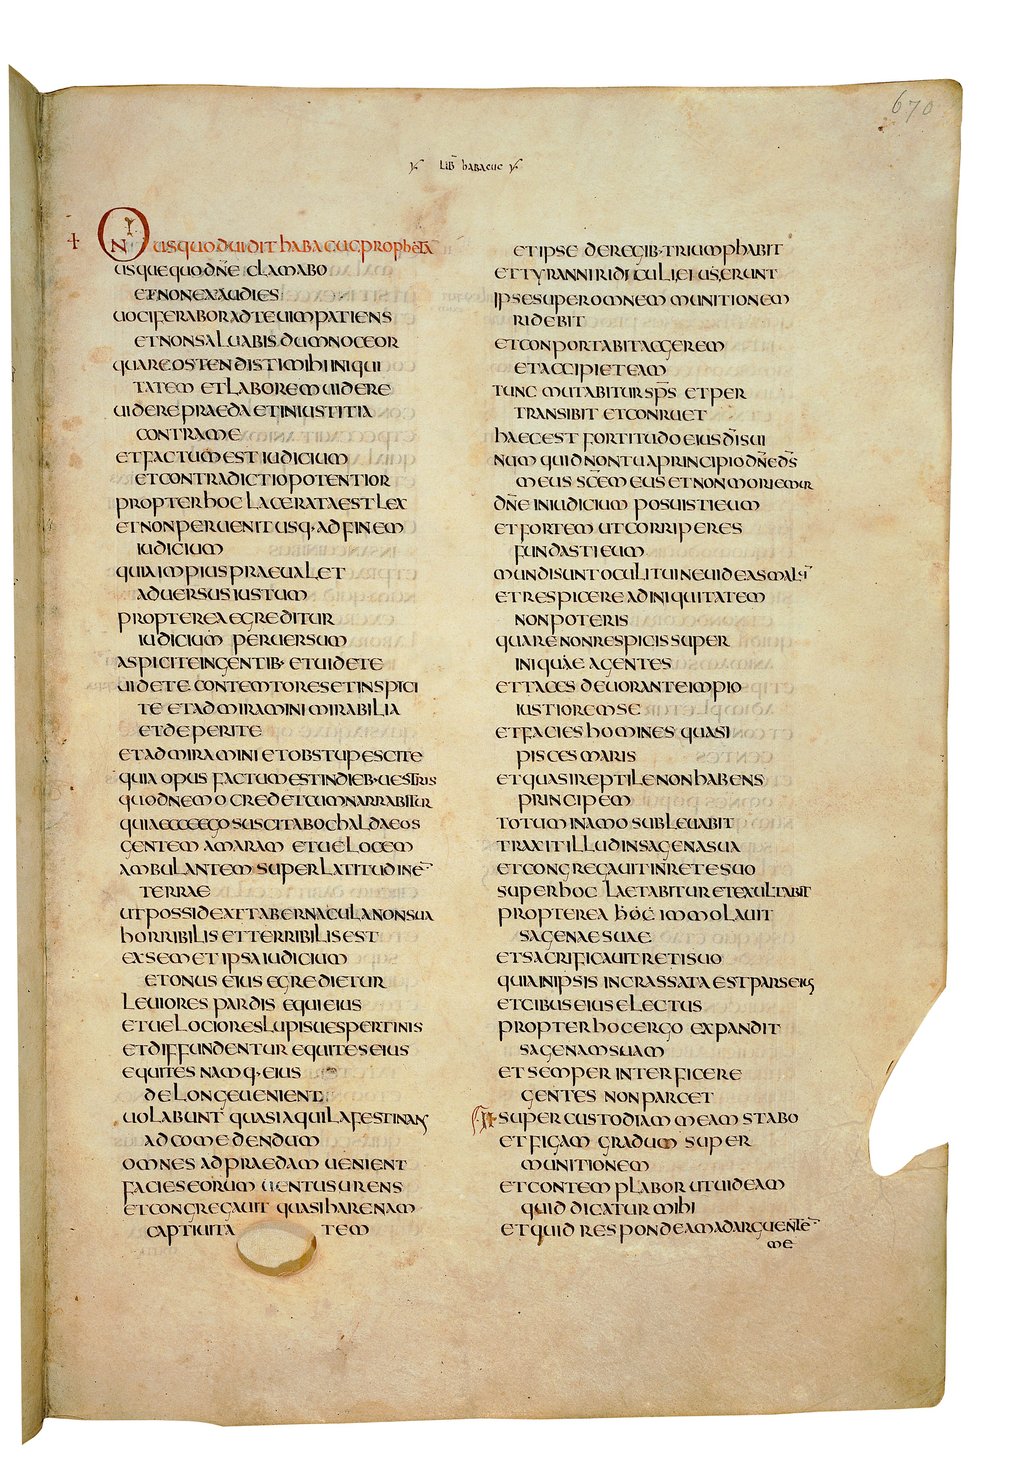 670
LIB̄ habacuc
ONus quod uidit habacuc propheta
usquequo dn̄e clamabo
et non exaudies
uociferabor ad te uim patiens
et non saluabis dum noceor
quare ostendisti mihi iniqui
tatem et laborem uidere
uidere praeda et iniustitia
contra me
et factum est iudicium
et contradictio potentior
propter hoc lacerata est lex
et non peruenit usq· ad finem
iudicium
quia impius praeualet
aduersus iustum
propterea egreditur
iudicium peruersum
aspicite in gentib· et uidete
uidete contemtores et inspici
te et admiramini mirabilia
et deperite
et admiramini et obstupescite
quia opus factum est in dieb· uestris
quod nemo credet cum narrabitur
quia ecce ego suscitabo chaldaeos
gentem amaram et uelocem
ambulantem super latitudinē
terrae
ut possideat tabernacula non sua
horribilis et terribilis est
ex semet ipsa iudicium
et onus eius egredietur
leuiores pardis equi eius
et uelociores lupis uespertinis
et diffundentur equites eius
equites namq· eius
de longe uenient
uolabunt quasi aquila festinans
ad comedendum
omnes ad praedam uenient
facies eorum uentus urens
et congregauit quasi harenam
captiuita tem
et ipse de regib· triumphabit
et tyranni ridiculi eius erunt
ipse super omnem munitionem
ridebit
et conportabit aggerem
et accipiet eam
tunc mutabitur sp̄s et per
transibit et conruet
haec est fortitudo eius dī sui
numquid non tu a principio dn̄e ds̄
meus sc̄e meus et non moriemur
dn̄e in iudicium posuisti eum
et fortem ut corriperes
fundasti eum
mundi sunt oculi tui ne uideas malū
et respicere ad iniquitatem
non poteris
quare non respicis super
iniquae agentes
et taces deuorante impio
iustiorem se
et facies homines quasi
pisces maris
et quasi reptile non habens
principem
totum in amo subleuabit
traxit illud in sagena sua
et congregauit in rete suo
super hoc laetabitur et exultabit
propterea hoc immolauit
sagenae suae
et sacrificauit reti suo
quia in ipsis incrassata est pars eius
et cibus eius electus
propter hoc ergo expandit
sagenam suam
et semper interficere
gentes non parcet
super custodiam meam stabo
et figam gradum super
munitionem
et contemplabor ut uideam
quid dicatur mihi
et quid respondeam ad arguentē
me